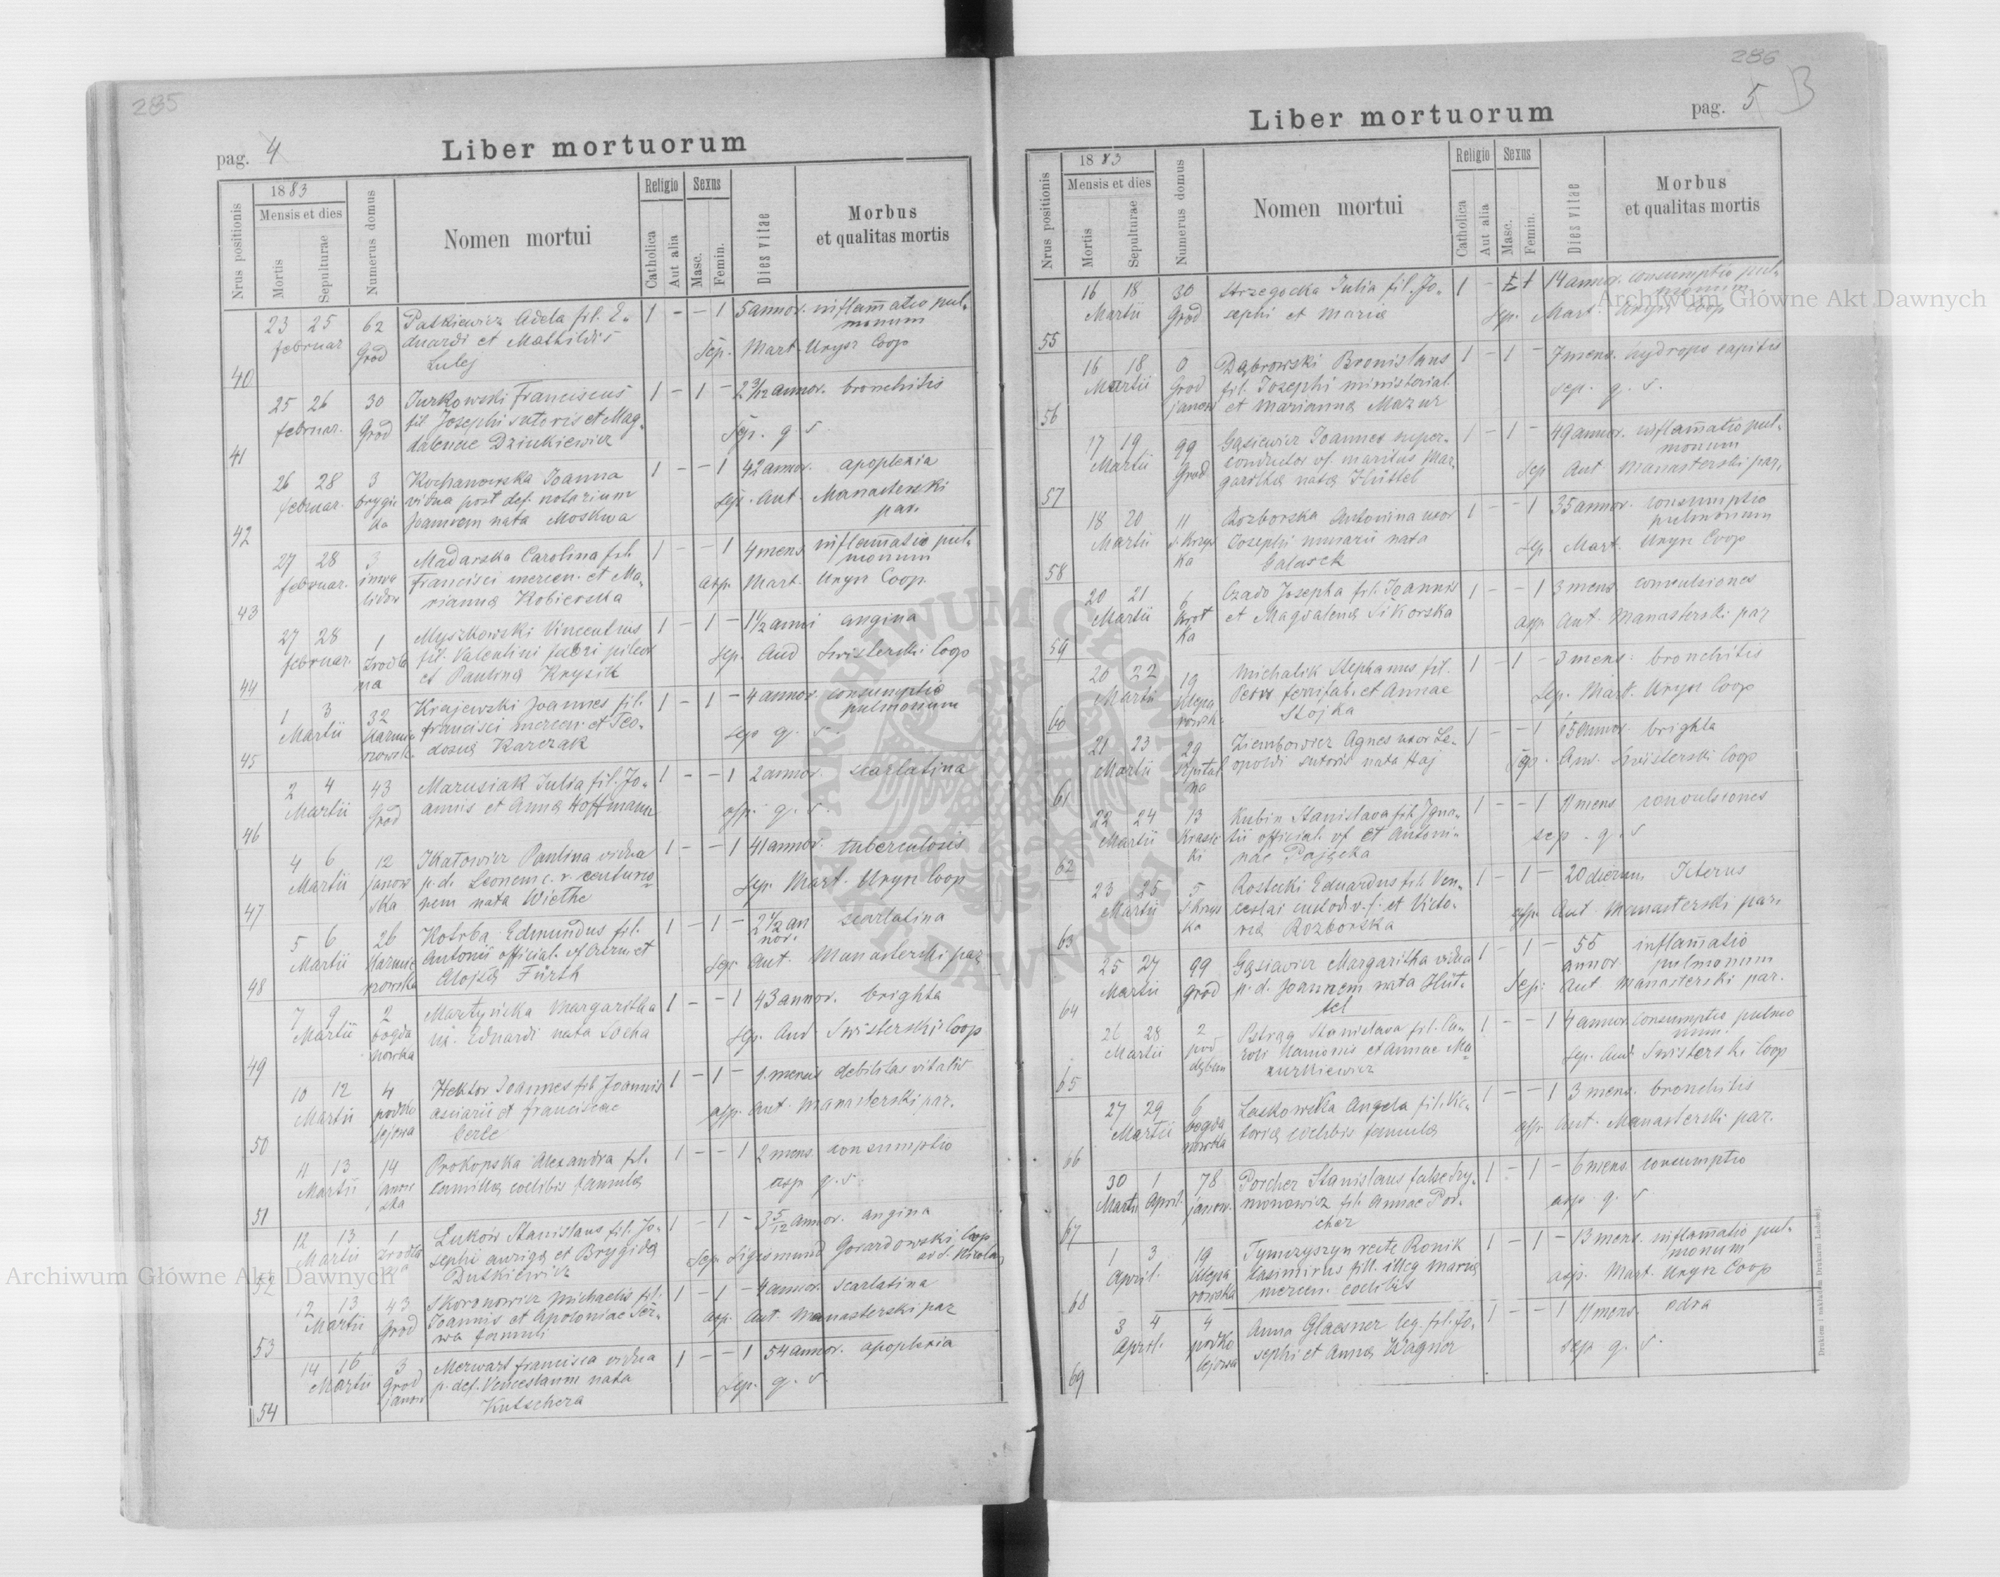 285
pag. 4
Liber mortuorum
Nrus positionis
1883
Mensis et dies
Mortis
Sepulturae
Numerus domus
Nomen mortui
Religio
Catholica
Aut alia
Sexus
Masc.
Femin.
Dies vitae
Morbus
et qualitas mortis
40
23 25 62 Patkiewicz Adela fil. E- 1 - - 1 5 annor. inflam̄atio pul-
februar Grod duardi et Mathildis monum
Lulej Sep. Mart. Uryn Coop
41
25 26 30 Jurkowski Franciscus 1 - 1 - 2 3/12 annor. bronchitis
februar. Grod fil Josephi sutoris et Mag-
dalenae Dziukiewicz Sep. q. s.
42
26 28 3 Kochanowska Joanna 1 - - 1 42 annor. apoplexia
februar. brygic vidua post def. notarium sep. Ant. Manasterski
ka Joannem nata Moskwa par.
43
27 28 3 Madarska Carolina fil. 1 - - 1 4 mens inflam̄atio pul-
februar. inwa Francisci mercen. et Ma- monum
lidow rianna Kobierska asp. Mart. Uryn Coop.
44
27 28 1 Myszkowski Vincentius 1 - 1 - 1 1/2 anni angina
februar. zrodla fil. Valentini fabri pileor
na et Paulina Krysik sep. Aud Swisterski Coop
45
1 3 32 Krajewski Joannes fil. 1 - 1 - 4 annor consumptio
Martii Francisci mercen. et Teo- pulmonum
dosia Karczak sep q. s.
46
2 4 43 Marusiak Julia fil. Jo- 1 - - 1 2 annor. scarlatina
Martii Grod annis et Anna Hoffmann asp. q. s
47
4 6 12 Paulina vidua 1 - - 1 41 annor. tuberculosis
Martii janow p. d. Leonem c. r. centurio-
ska nem nata Wiethe sep. Mart. Uryn Coop
48
5 6 26 Kotrba Edmundus fil. 1 - 1 - 2 1/2 an scarlatina
Martii Antonii official. et nor.
Alojza Fürth sep. Ant. Manasterski par
49
7 9 2 Martyńska Margaritha 1 - - 1 43 annor. brighta
Martii bogda ux. Eduardi nata Socha
nowka sep. Aud Swisterski Coop
50
10 12 4 Hektor Joannes fil Joannis 1 - 1 - 9. mensis debilitas vitalis
Martii podko asinarii et Franciscae
lejowa Berle asp. Ant. Manasterski par.
51
11 13 14 Prokopska Alexandra fil. 1 - - 1 2 mens. consumptio
Martii janow Camilla coelibis famula
ska asp q. s.
52
12 13 1 Luków Stanislaus fil. Jo- 1 - 1 - 3 5/12 annor. angina
Martii zrodla sephi auriga et Brygida
na Dutkiewicz Sep. Sigismund Gorardowski Coop
ad S. Nicolai
53
12 13 43 Skoronowicz Michaelis fil. 1 - 1 - 4 annor. scarlatina
Martii Grod Joannis et Apoloniae Ser-
wa famuli asp. Ant. Manasterski par
54
14 16 3 Merwart Francisca vidua 1 - - 1 54 annor. apoplexia
Martii Grod p. def. Venceslaum nata
janow Kutschera sep. q. s.
286
Liber mortuorum
pag. 5 B
Nrus positionis
1883
Mensis et dies
Mortis
Sepulturae
Numerus domus
Nomen mortui
Religio
Catholica
Aut alia
Sexus
Masc.
Femin.
Dies vitae
Morbus
et qualitas mortis
55
16 18 30 Strzegocka Julia fil. Jo- 1 - 1 14 annor. consumptio pul-
Martii Grod sephi et Maria monum
sep. Mart. Uryn Coop
56
16 18 0 Dąbrowski Bronislaus 1 - 1 - 7 mens. hydrops capitis
Martii Grod fil. Josephi ministerial.
janow et Marianna Mazur sep. q. s.
57
17 19 99 Gąsiewicz Joannes super- 1 - 1 - 49 annor. inflam̄atio pul-
Martii Grod conductor vf. maritus Mar- monum
garitha nata Hüttel sep Ant Manasterski par.
58
18 20 11 Rozborska Antonina uxor 1 - - 1 35 annor. consumptio
Martii s. krzys Josephi murarii nata pulmonum
ka Galasek sep. Mart. Uryn Coop
59
20 21 6 Czado Josepha fil. Joannis 1 - - 1 3 mens convulsiones
Martii krot et Magdalena Sikorska
ka asp. Ant. Manasterski par
60
20 22 19 Michalik Stephanus fil. 1 - 1 - 3 mens. bronchitis
Martii klepa Petri et Annae
rowsk. Stojka sep. Mart. Uryn Coop
61
21 23 29 Ziembowicz Agnes uxor Le- 1 - - 1 65 annor brighta
Martii szpital opoldi sutoris nata Haj
na sep. Aud. Swisterski Coop
62
22 24 13 Kubin Stanislava fil Igna- 1 - - 1 11 mens convulsiones
Martii krasic tii official. vf et Antoni-
ki nae Pajączka sep. q. s
63
23 25 5 Rostecki Eduardus fil. Ven- 1 - 1 - 20 dierum Icterus
Martii s krzys ceslai custod. v. f. et Victo-
ka ria Rozborska asp. Ant. Manasterski par.
64
25 27 99 Gąsiewicz Margaritha vidua 1 - 1 - 55 inflam̄atio
Martii Grod p. d. Joannem nata Hüt- annor. pulmonum
tel Sep. Ant Manasterski par.
65
26 28 2 Pstrąg Stanislava fil. Ca- 1 - - 1 4 annor. consumptio pulmo
Martii pod roli et Annae Ma num
dębem zurkiewicz sep. Aud Swisterski Coop
66
27 29 6 Laskowska Angela fil. Vic- 1 - - 1 3 mens. bronchitis
Martii bogda toria coelibis famula
nowka asp. Ant. Manasterski par.
67
30 1 78 Porcher Stanislaus false Szy- 1 - 1 - 6 mens. consumptio
Martii April. janow. monowicz fil. Annae Por-
cher asp. q. s
68
1 3 19 Tymczyszyn recte Ronik 1 - 1 - 13 mens. inflam̄atio pul-
April. klepa Casimirus fil. illeg Maria monum
rowska mercen. coelibis asp. Mart. Uryn Coop
69
3 4 4 Anna Glaesner leg fil. Jo- 1 - - 1 11 mens. odra
April. podko sephi et Anna Wagner
lejowa sep. q. s.
Archiwum Główne Akt Dawnych
Archiwum Główne Akt Dawnych
ARCHIWUM GŁÓWNE AKT DAWNYCH